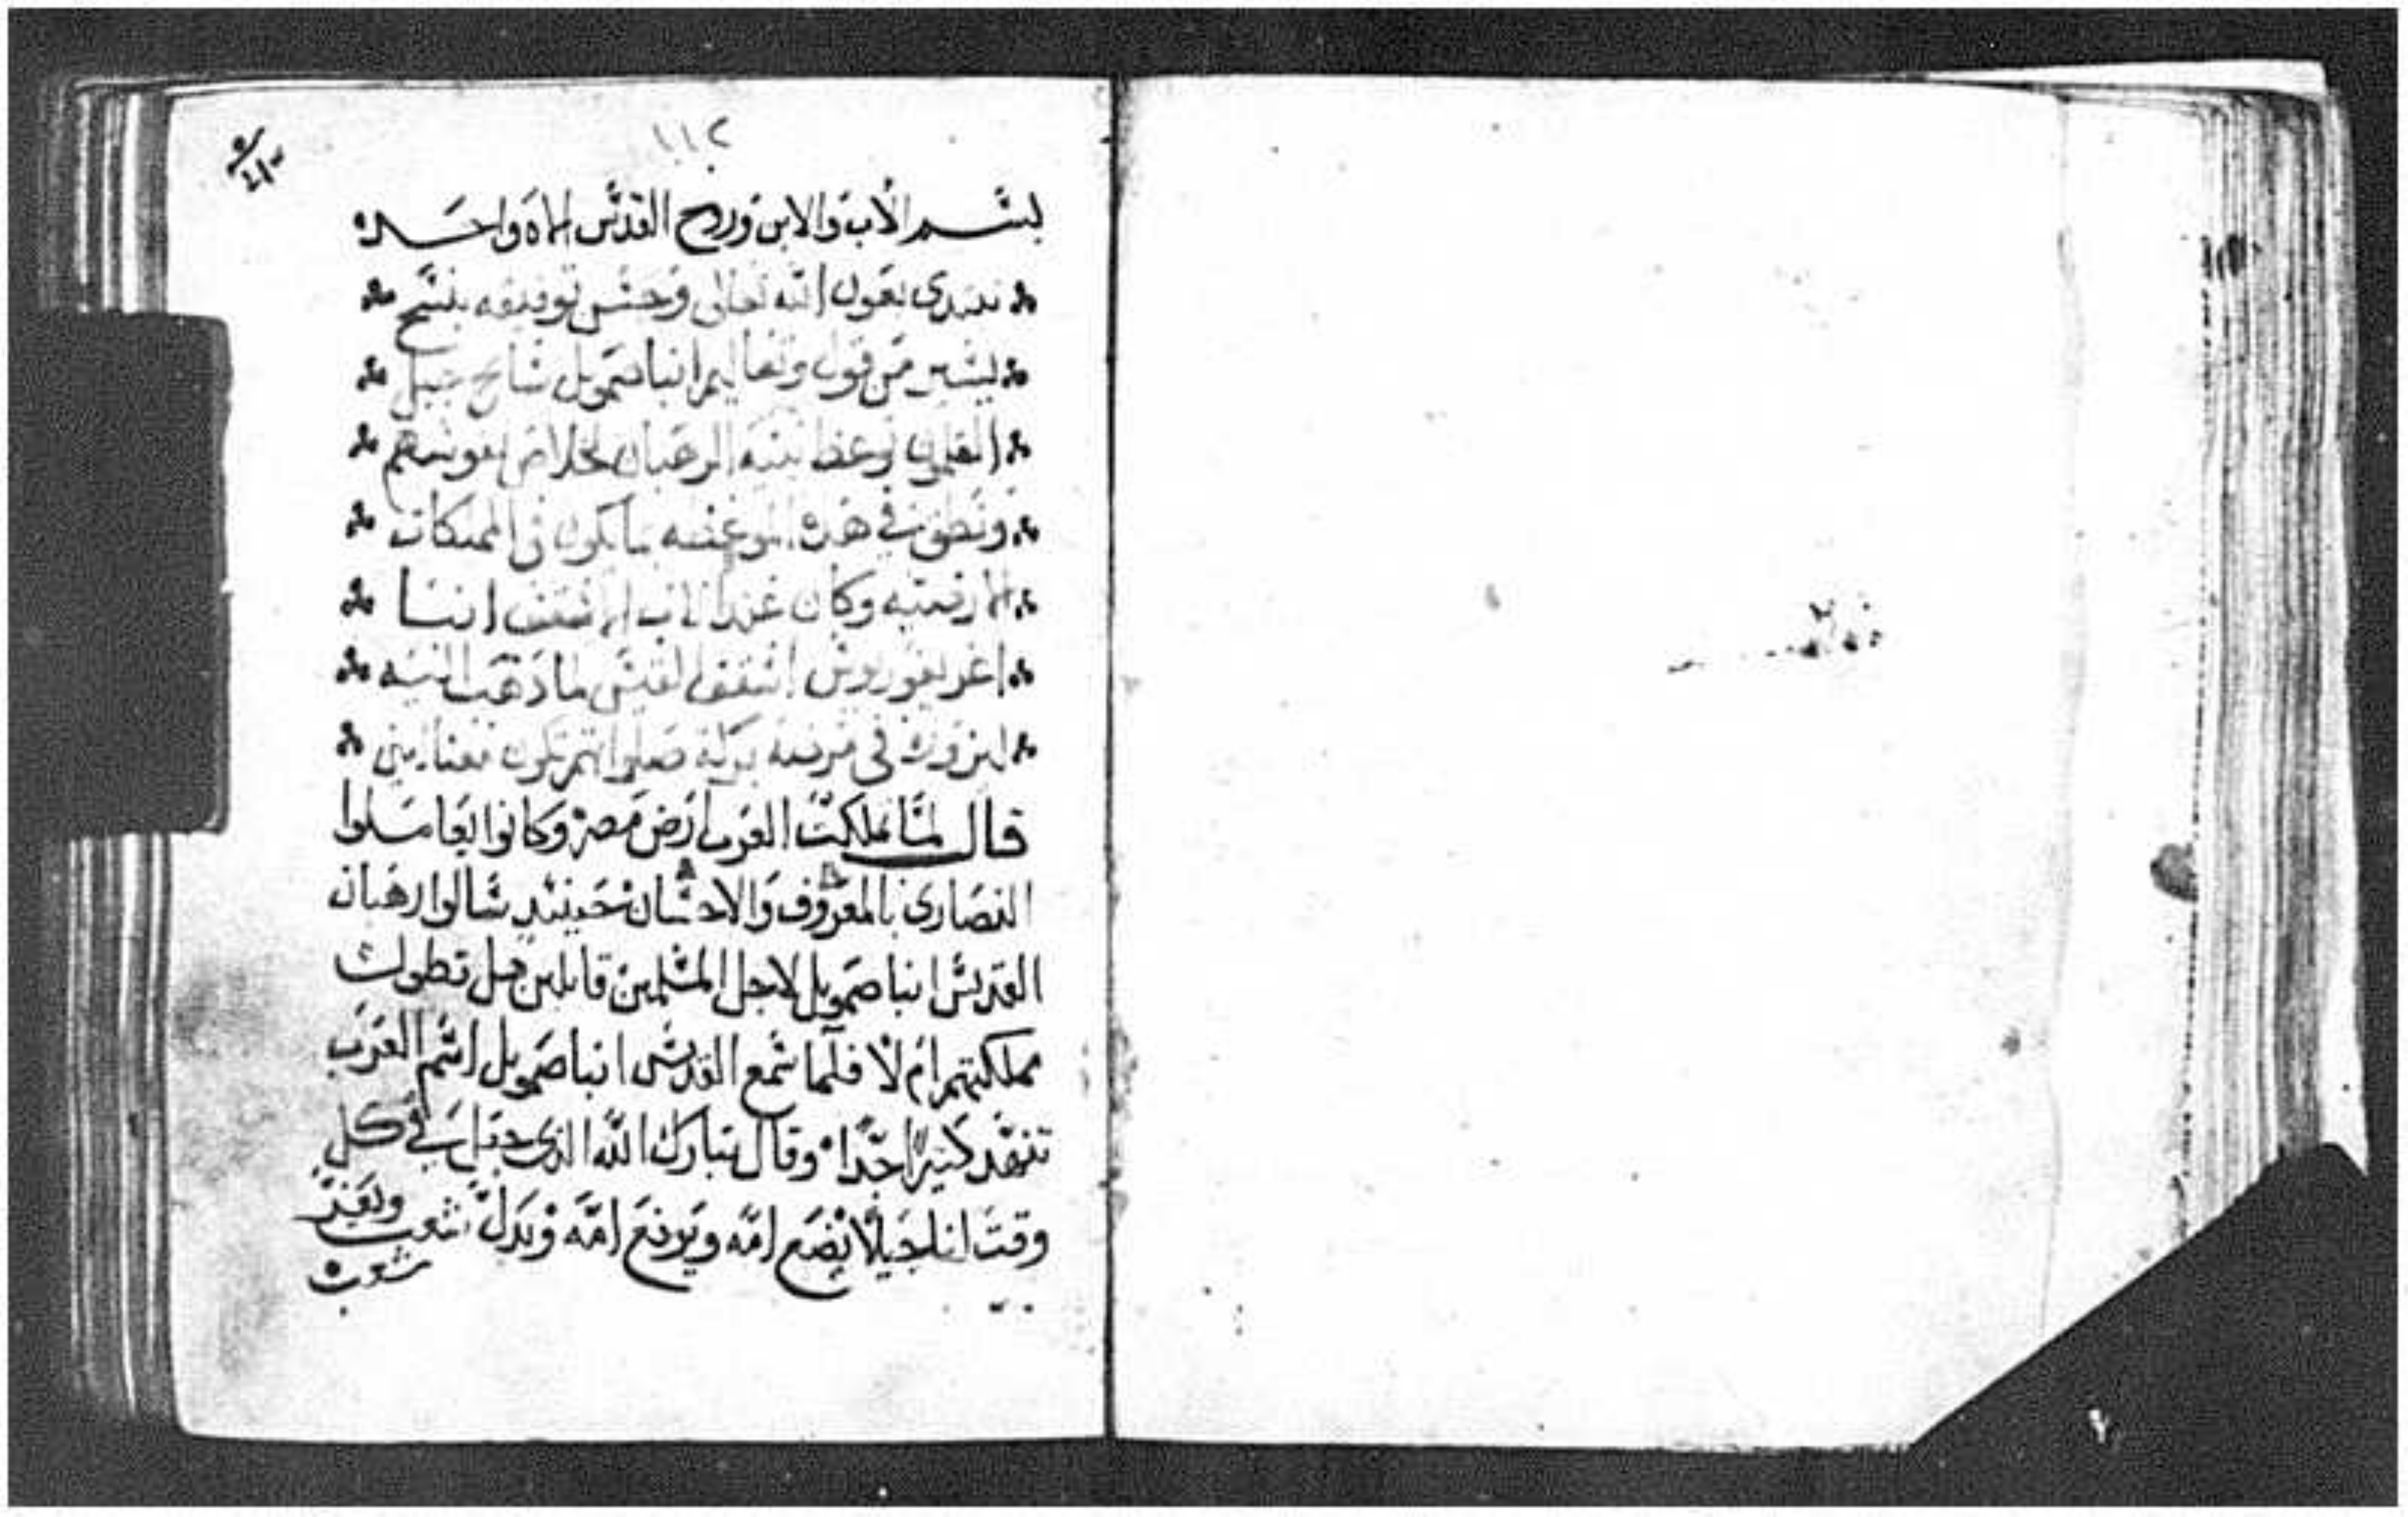 ١١٢
بسم الاب والابن وروح القدس الاه واحد
نبتدى بعون الله تعالى وحسن توفيقه بنسخ
يسير من قول وتعاليم انبا صمويل سايح جبل
القلمون وعظ بنيه الرهبان لخلاص نفوسهم
ونطق في هذه الموعضه بما يكون في المملكات
وكان عند الاب الاسقف انبا
اغريغوريوس اسقف القيس لما دهب اليه
ليزوره في مرضه بركة صلواتهم تكون معنا امين
قال لمّا تملكت العرب ارض مصر وكانوا يعاملوا
النصارى بالمعروف والاحسان حينيذ سالوا رهبان
القديس انبا صمويل لاجل المسلمين قايلين هل تطول
مملكتهم ام لا فلما سمع القديس انبا صمويل اسم العرب
تنهد كثيرًا جدًا وقال تبارك الله الذى جبل في كل
وقت اناجيلا يضع امّه ويرفع امّه وبدل شعب ولغير
شعب